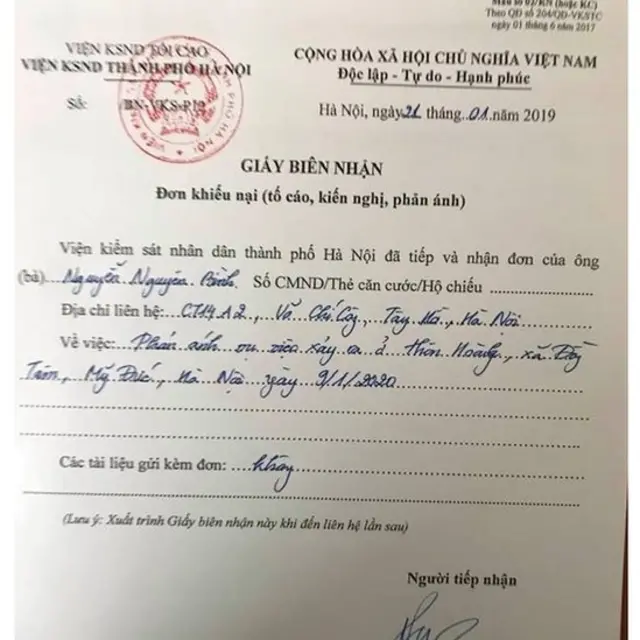 Mẫu số 02/KN (hoặc KC)
Theo QĐ số 204/QĐ-VKSTC
ngày 01 tháng 6 năm 2017
VIỆN KSND TỐI CAO
VIỆN KSND THÀNH PHỐ HÀ NỘI
CỘNG HÒA XÃ HỘI CHỦ NGHĨA VIỆT NAM
Độc lập - Tự do - Hạnh phúc
Số: BN-VKS-P12
Hà Nội, ngày 21 tháng..01.năm 2019
GIẤY BIÊN NHẬN
Đơn khiếu nại (tố cáo, kiến nghị, phản ánh)
Viện kiểm sát nhân dân thành phố Hà Nội đã tiếp và nhận đơn của ông
(bà)....Nguyễn Nguyên Bình. Số CMND/Thẻ căn cước/Hộ chiếu
Địa chỉ liên hệ:...CT14A2.., Võ Chí Công.., Tây Hồ.., Hà Nội
Về việc:...Phản ánh vụ việc xảy ra ở thôn Hoành.., xã Đồng
Tâm.., Mỹ Đức.., Hà Nội ngày 9/1/2020
Các tài liệu gửi kèm đơn: ....không
(Lưu ý: Xuất trình Giấy biên nhận này khi đến liên hệ lần sau)
Người tiếp nhận